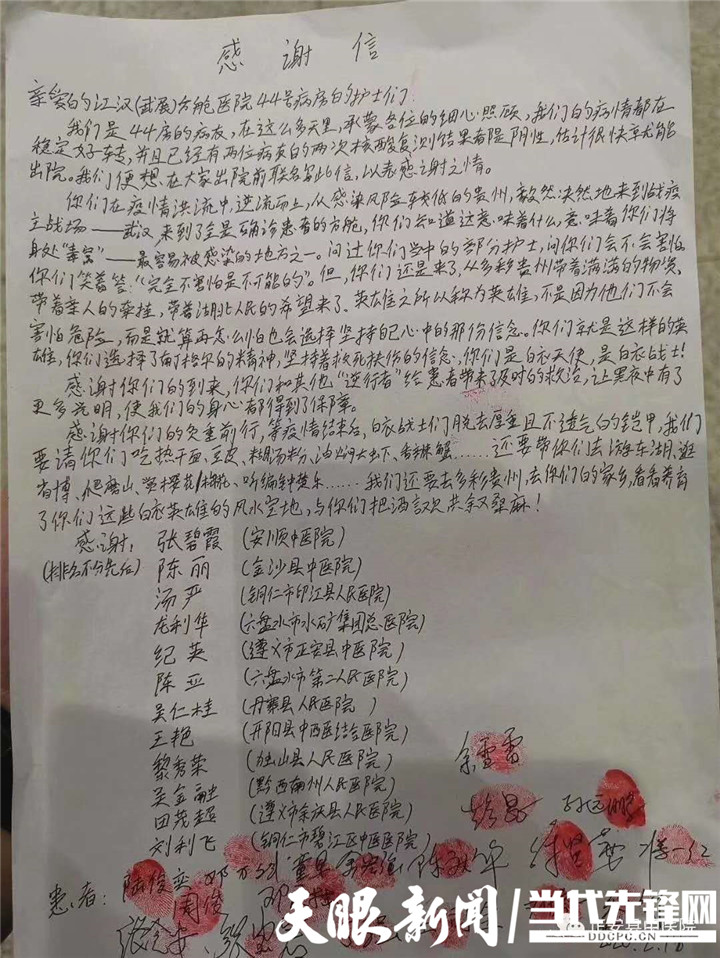 感谢信
亲爱的江汉(武展)方舱医院44号病房的护士们:
我们是44房的病友,在这么多天里,承蒙各位的细心照顾,我们的病情都在
稳定好转,并且已经有两位病友的两次核酸复测结果都是阴性,估计很快就能
出院。我们便想在大家出院前联名写此信,以表感谢之情。
你们在疫情洪流中,逆流而上,从感染风险较低的贵州,毅然决然地来到战疫
主战场——武汉来到了全是确诊患者的方舱,你们知道这意味着什么,意味着你们将
身处“毒窝”——最容易被感染的地方之一。问过你们当中的部分护士,问你们会不会害怕
你们笑着答:“完全不害怕是不可能的”。但,你们还是来了,从多彩贵州带着满满的物资、
带着亲人的牵挂,带着湖北人民的希望来了、英雄之所以称为英雄,不是因为他们不会
害怕危险,而是就算再怎么怕也会选择坚持自己心中的那份信念。你们就是这样的英
雄,你们选择了南丁格尔的精神,坚持着救死扶伤的信念,你们是白衣天使,是白衣战士!
感谢你们的到来,你们和其他“逆行者”给患者带来了及时的救治,让黑夜中有了
更多光明,使我们的身心都得到了保障。
感谢你们的负重前行,等疫情结束后,白衣战士们脱去厚重且不透气的铠甲,我们
要请你们吃热干面、豆皮、糊汤粉、油焖大虾、香辣蟹……还要带你们去游东湖、逛
省博、爬磨山、赏樱花/梅花、听编钟音乐……我们还要去多彩贵州,去你们的家乡,看看养育
了你们这些白衣英雄的风水宝地,与你们把酒言欢共叙桑麻!
感谢: 张碧霞 (安顺中医院)
(排名不分先后) 陈丽 (金沙县中医院)
汤严 (铜仁市印江县人民医院)
龙利华 (六盘水市水矿集团总医院)
纪英 (遵义市正安县中医院)
陈亚 (六盘水市第二人民医院)
吴仁桂 (丹寨县人民医院)
王艳 (开阳县中西医结合医院)
黎秀荣 (独山县人民医院)
吴金融 (黔西南州人民医院)
田茂超 (遵义市余庆县人民医院)
刘利飞 (铜仁市碧江区中医医院)
余雪雷
患者: 陆俊奕
周俊
天眼新闻 当代先锋网
DDCPC.CN
正安县中医院